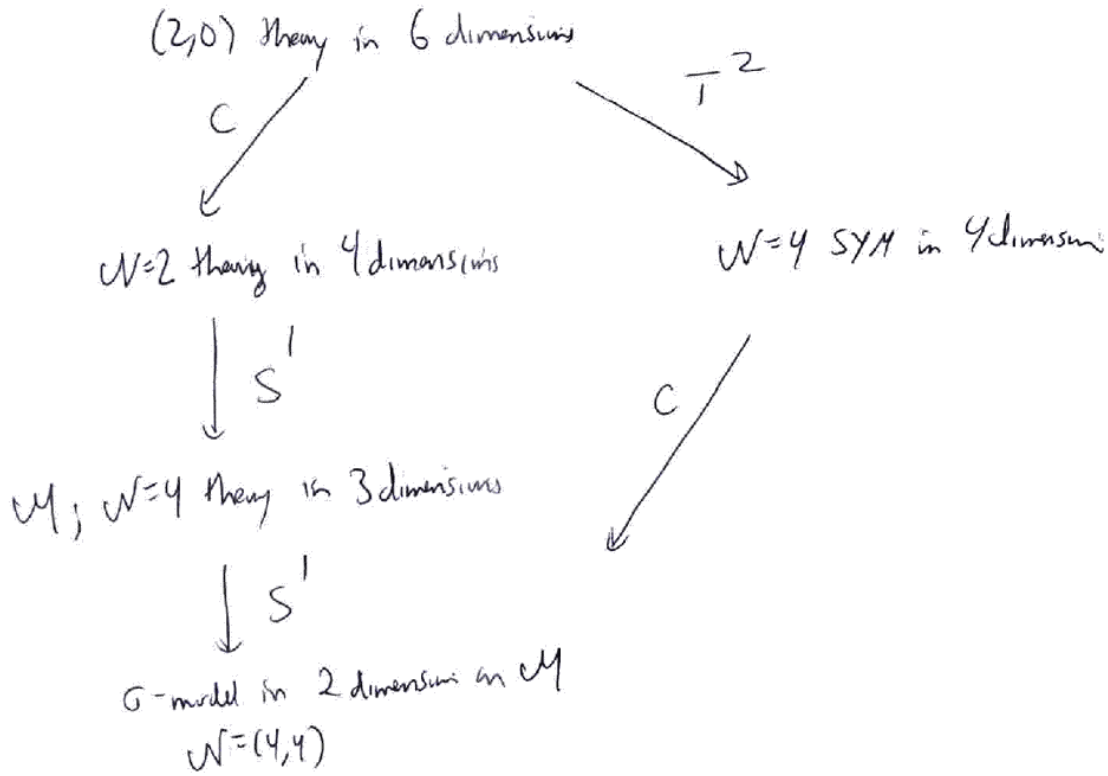 (2,0) theory in 6 dimensions
C
T²
N=2 theory in 4 dimensions
N=4 SYM in 4 dimensions
S¹
C
M, N=4 theory in 3 dimensions
S¹
σ-model in 2 dimensions on M
N=(4,4)